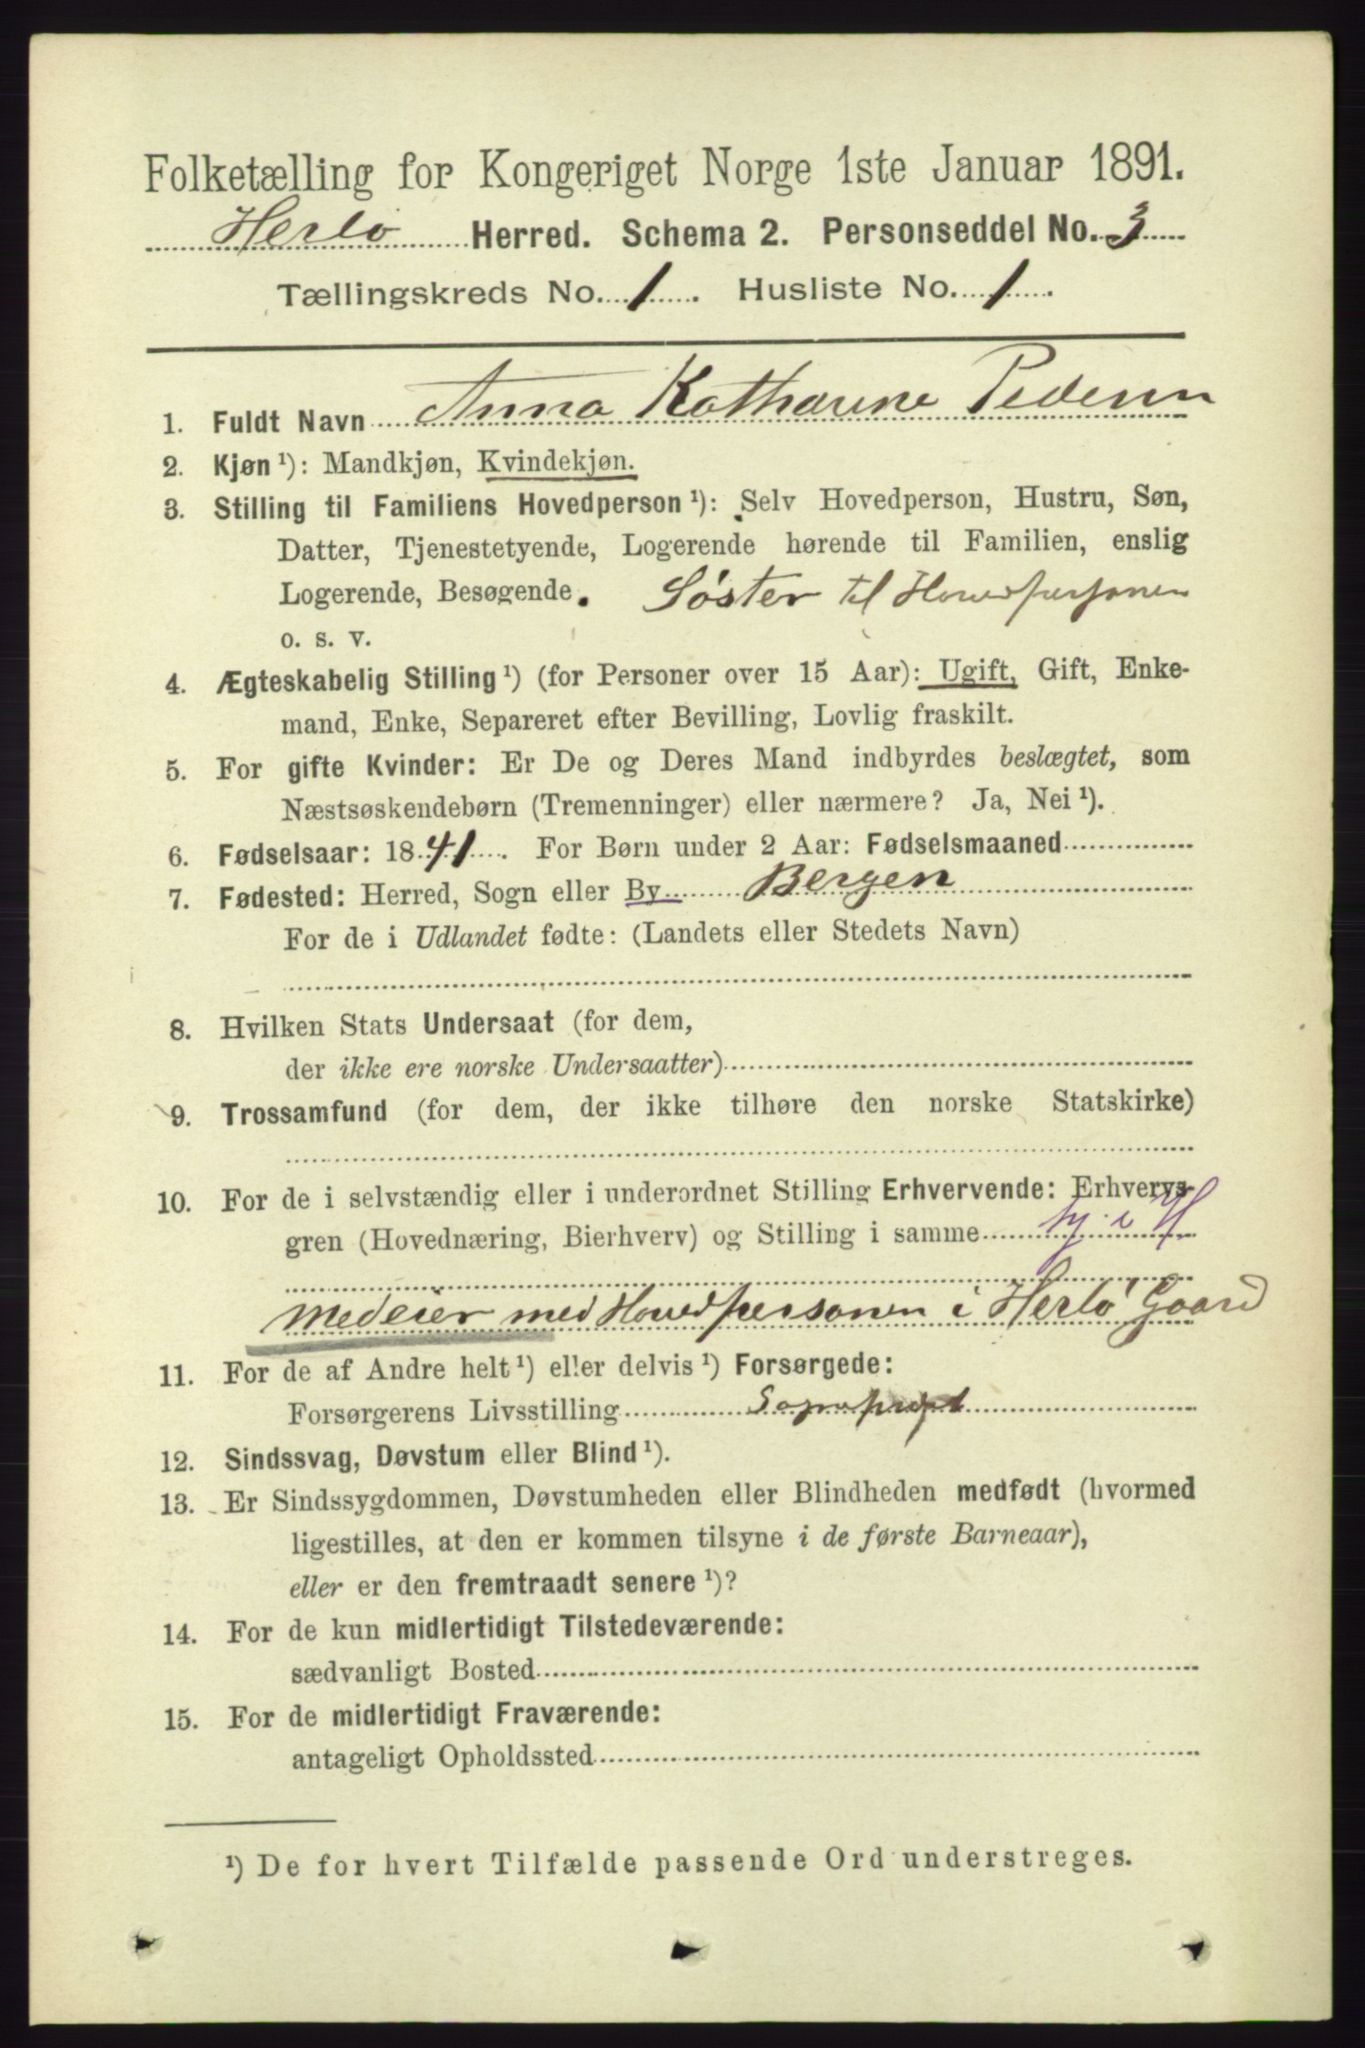 Folketælling for Kongeriget Norge 1ste Januar 1891.
Herlø Herred. Schema 2. Personseddel No. 3
Tællingskreds No. 1. Husliste No. 1.
1. Fuldt Navn Anna Katharine Pedersen
2. Kjøn ¹): Mandkjøn, Kvindekjøn.
3. Stilling til Familiens Hovedperson ¹): Selv Hovedperson, Hustru, Søn,
Datter, Tjenestetyende, Logerende hørende til Familien, enslig
Logerende, Besøgende. Søster til Hovedpersonen
o. s. v.
4. Ægteskabelig Stilling ¹) (for Personer over 15 Aar): Ugift, Gift, Enke-
mand, Enke, Separeret efter Bevilling, Lovlig fraskilt.
5. For gifte Kvinder: Er De og Deres Mand indbyrdes beslægtet, som
Næstsøskendebørn (Tremenninger) eller nærmere? Ja, Nei ¹).
6. Fødselsaar: 1841. For Børn under 2 Aar: Fødselsmaaned
7. Fødested: Herred, Sogn eller By Bergen
For de i Udlandet fødte: (Landets eller Stedets Navn)
8. Hvilken Stats Undersaat (for dem,
der ikke ere norske Undersaatter)
9. Trossamfund (for dem, der ikke tilhøre den norske Statskirke)
10. For de i selvstændig eller i underordnet Stilling Erhvervende: Erhvervs-
gren (Hovednæring, Bierhverv) og Stilling i samme ty. i H.
medeier med Hovedpersonen i Herlø Gaard
11. For de af Andre helt ¹) eller delvis ¹) Forsørgede:
Forsørgerens Livsstilling
12. Sindssvag, Døvstum eller Blind ¹).
13. Er Sindssygdommen, Døvstumheden eller Blindheden medfødt (hvormed
ligestilles, at den er kommen tilsyne i de første Barneaar),
eller er den fremtraadt senere ¹)?
14. For de kun midlertidigt Tilstedeværende:
sædvanligt Bosted
15. For de midlertidigt Fraværende:
antageligt Opholdssted
¹) De for hvert Tilfælde passende Ord understreges.